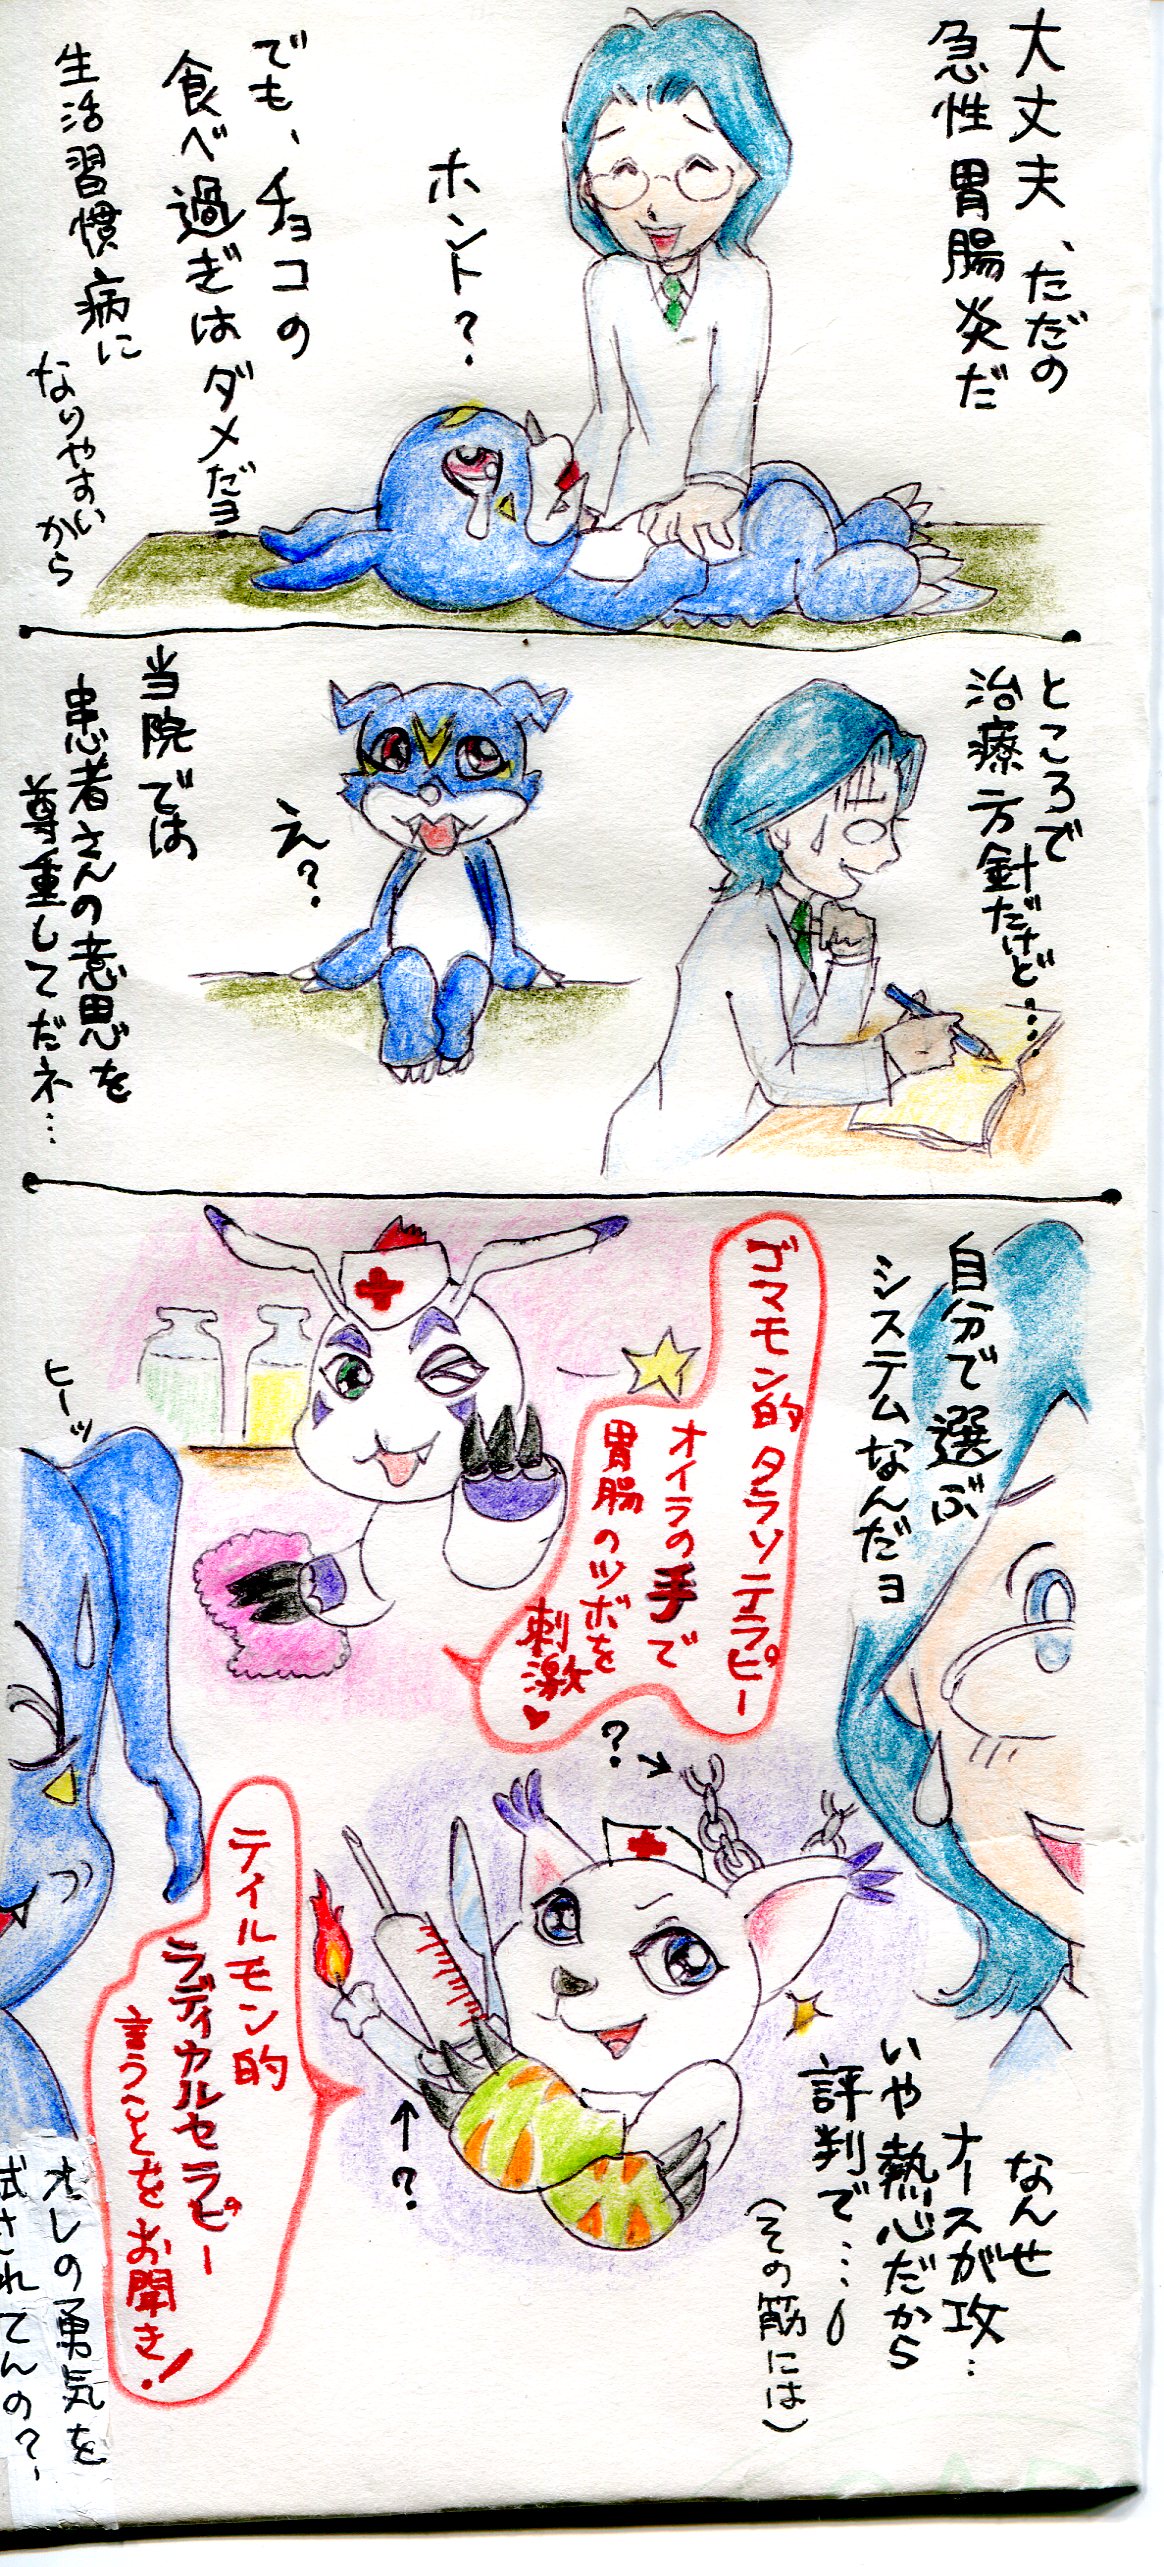 大丈夫、ただの
急性胃腸炎だ
ホント?
でも、チョコの
食べ過ぎはダメだヨ
生活習慣病に
なりやすい
から
ところで
治療方針だけど…
え?
当院では
患者さんの意思を
尊重してだネ…
自分で選ぶ
システムなんだヨ
ゴマモン的タラソテラピー
オイラの手で
胃腸のツボを
刺激♥
ヒーッ
?
テイルモン的
ラディカルセラピー
言うことをお聞き!
?
なんせ
ナースが攻…
いや熱心だから
評判で…
(その筋には)
オレの勇気を
試されてんの?